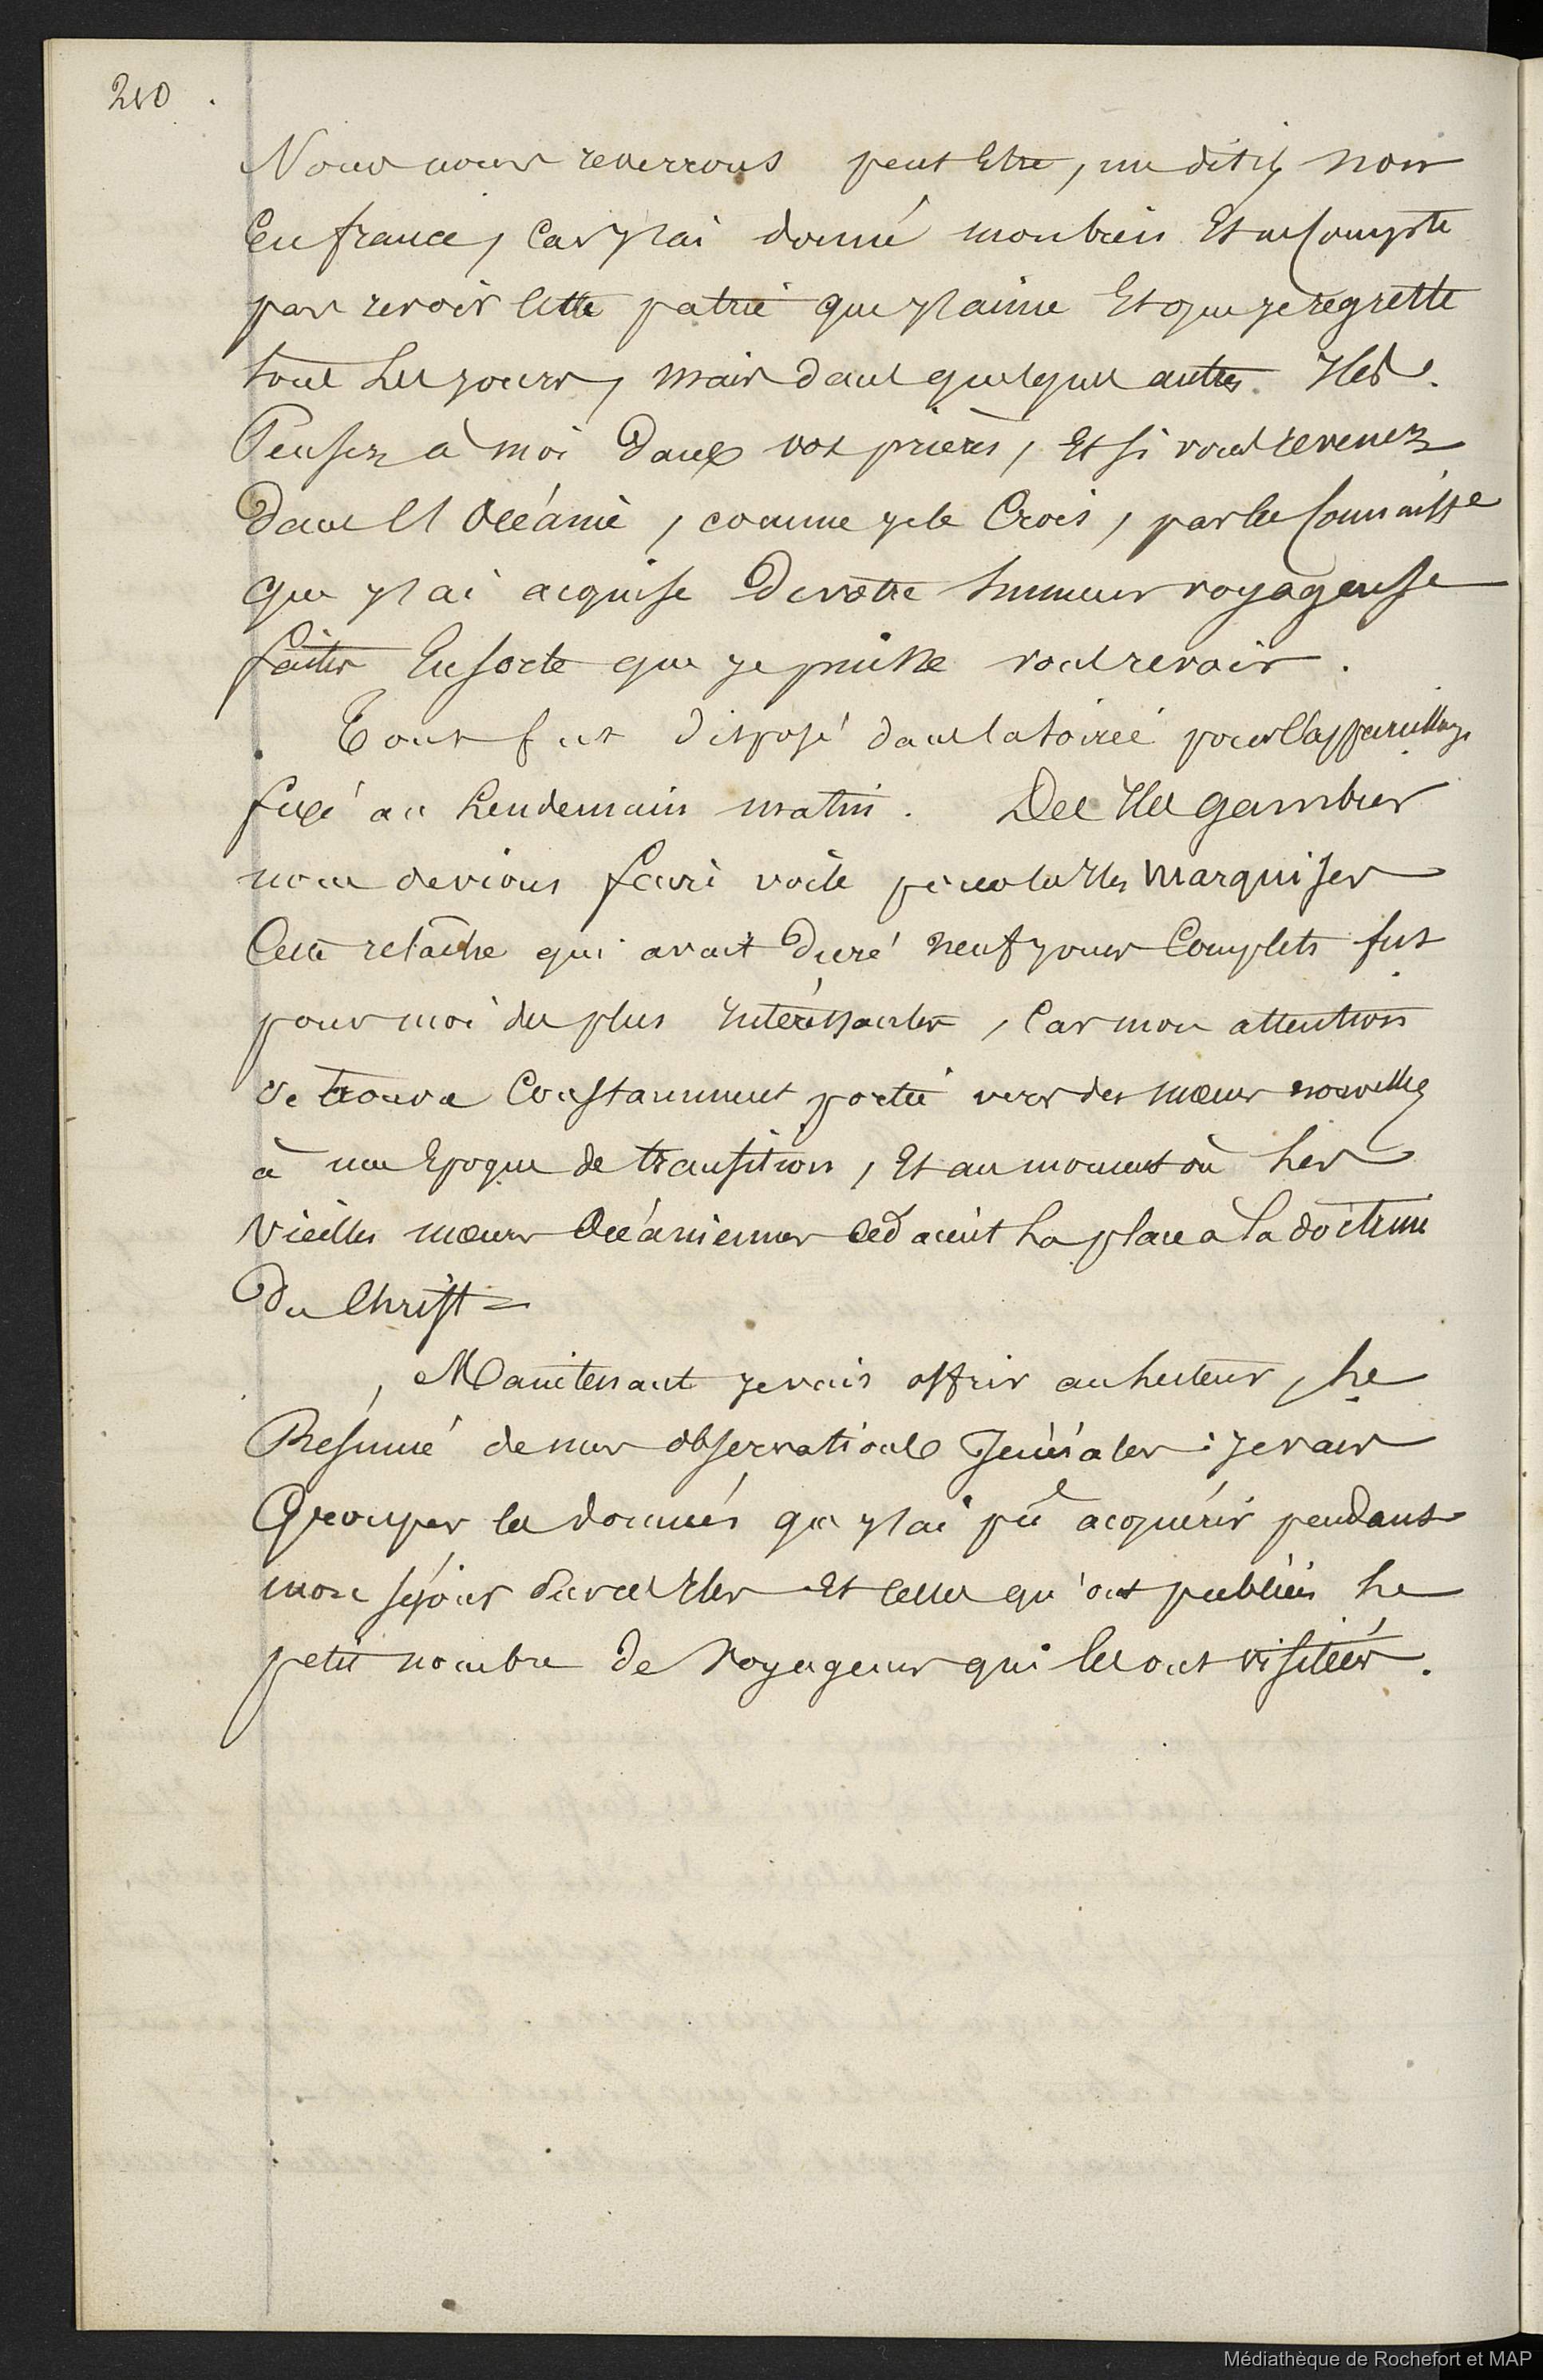 210.
Nous nous reverrons peut Etre, me dit il, non
En france, Car j'ai donné mon bien Et ne Compte
pas revoir Cette patrie que j'aime Et que je regrette
tous Les jours, mais dans quelques autres Iles.
Pensez à moi dans vos prières, Et si vous revenez
dans l'Océanie, comme je le Crois, par la Connaisse
que j'ai acquise de votre humeur voyageuse
faites En sorte que je puisse vous revoir.
Tout fut disposé dans la soirée pour l'appareillage
fixé au Lendemain matin. Des Iles gambier
nous devions faire voile pour les Iles marquises
Cette relâche qui avait duré neuf jours Complets fut
pour moi des plus Intéréssantes, Car mon attention
se trouva Constamment portée vers des mœurs nouvelles
à une Epoque de transition, Et au moment où Les
vieilles mœurs Océaniennes Cédaient La place à La doctrine
du Christ =
Maintenant je vais offrir au Lecteur, Le
Résumé de mes observations Générales : je vais
Grouper les données que j'ai pû acquérir pendant
mon séjour sur ces Iles Et Celles qu'ont publiées Le
petit nombre de voyageurs qui les ont visitées.
Médiathèque de Rochefort et MAP